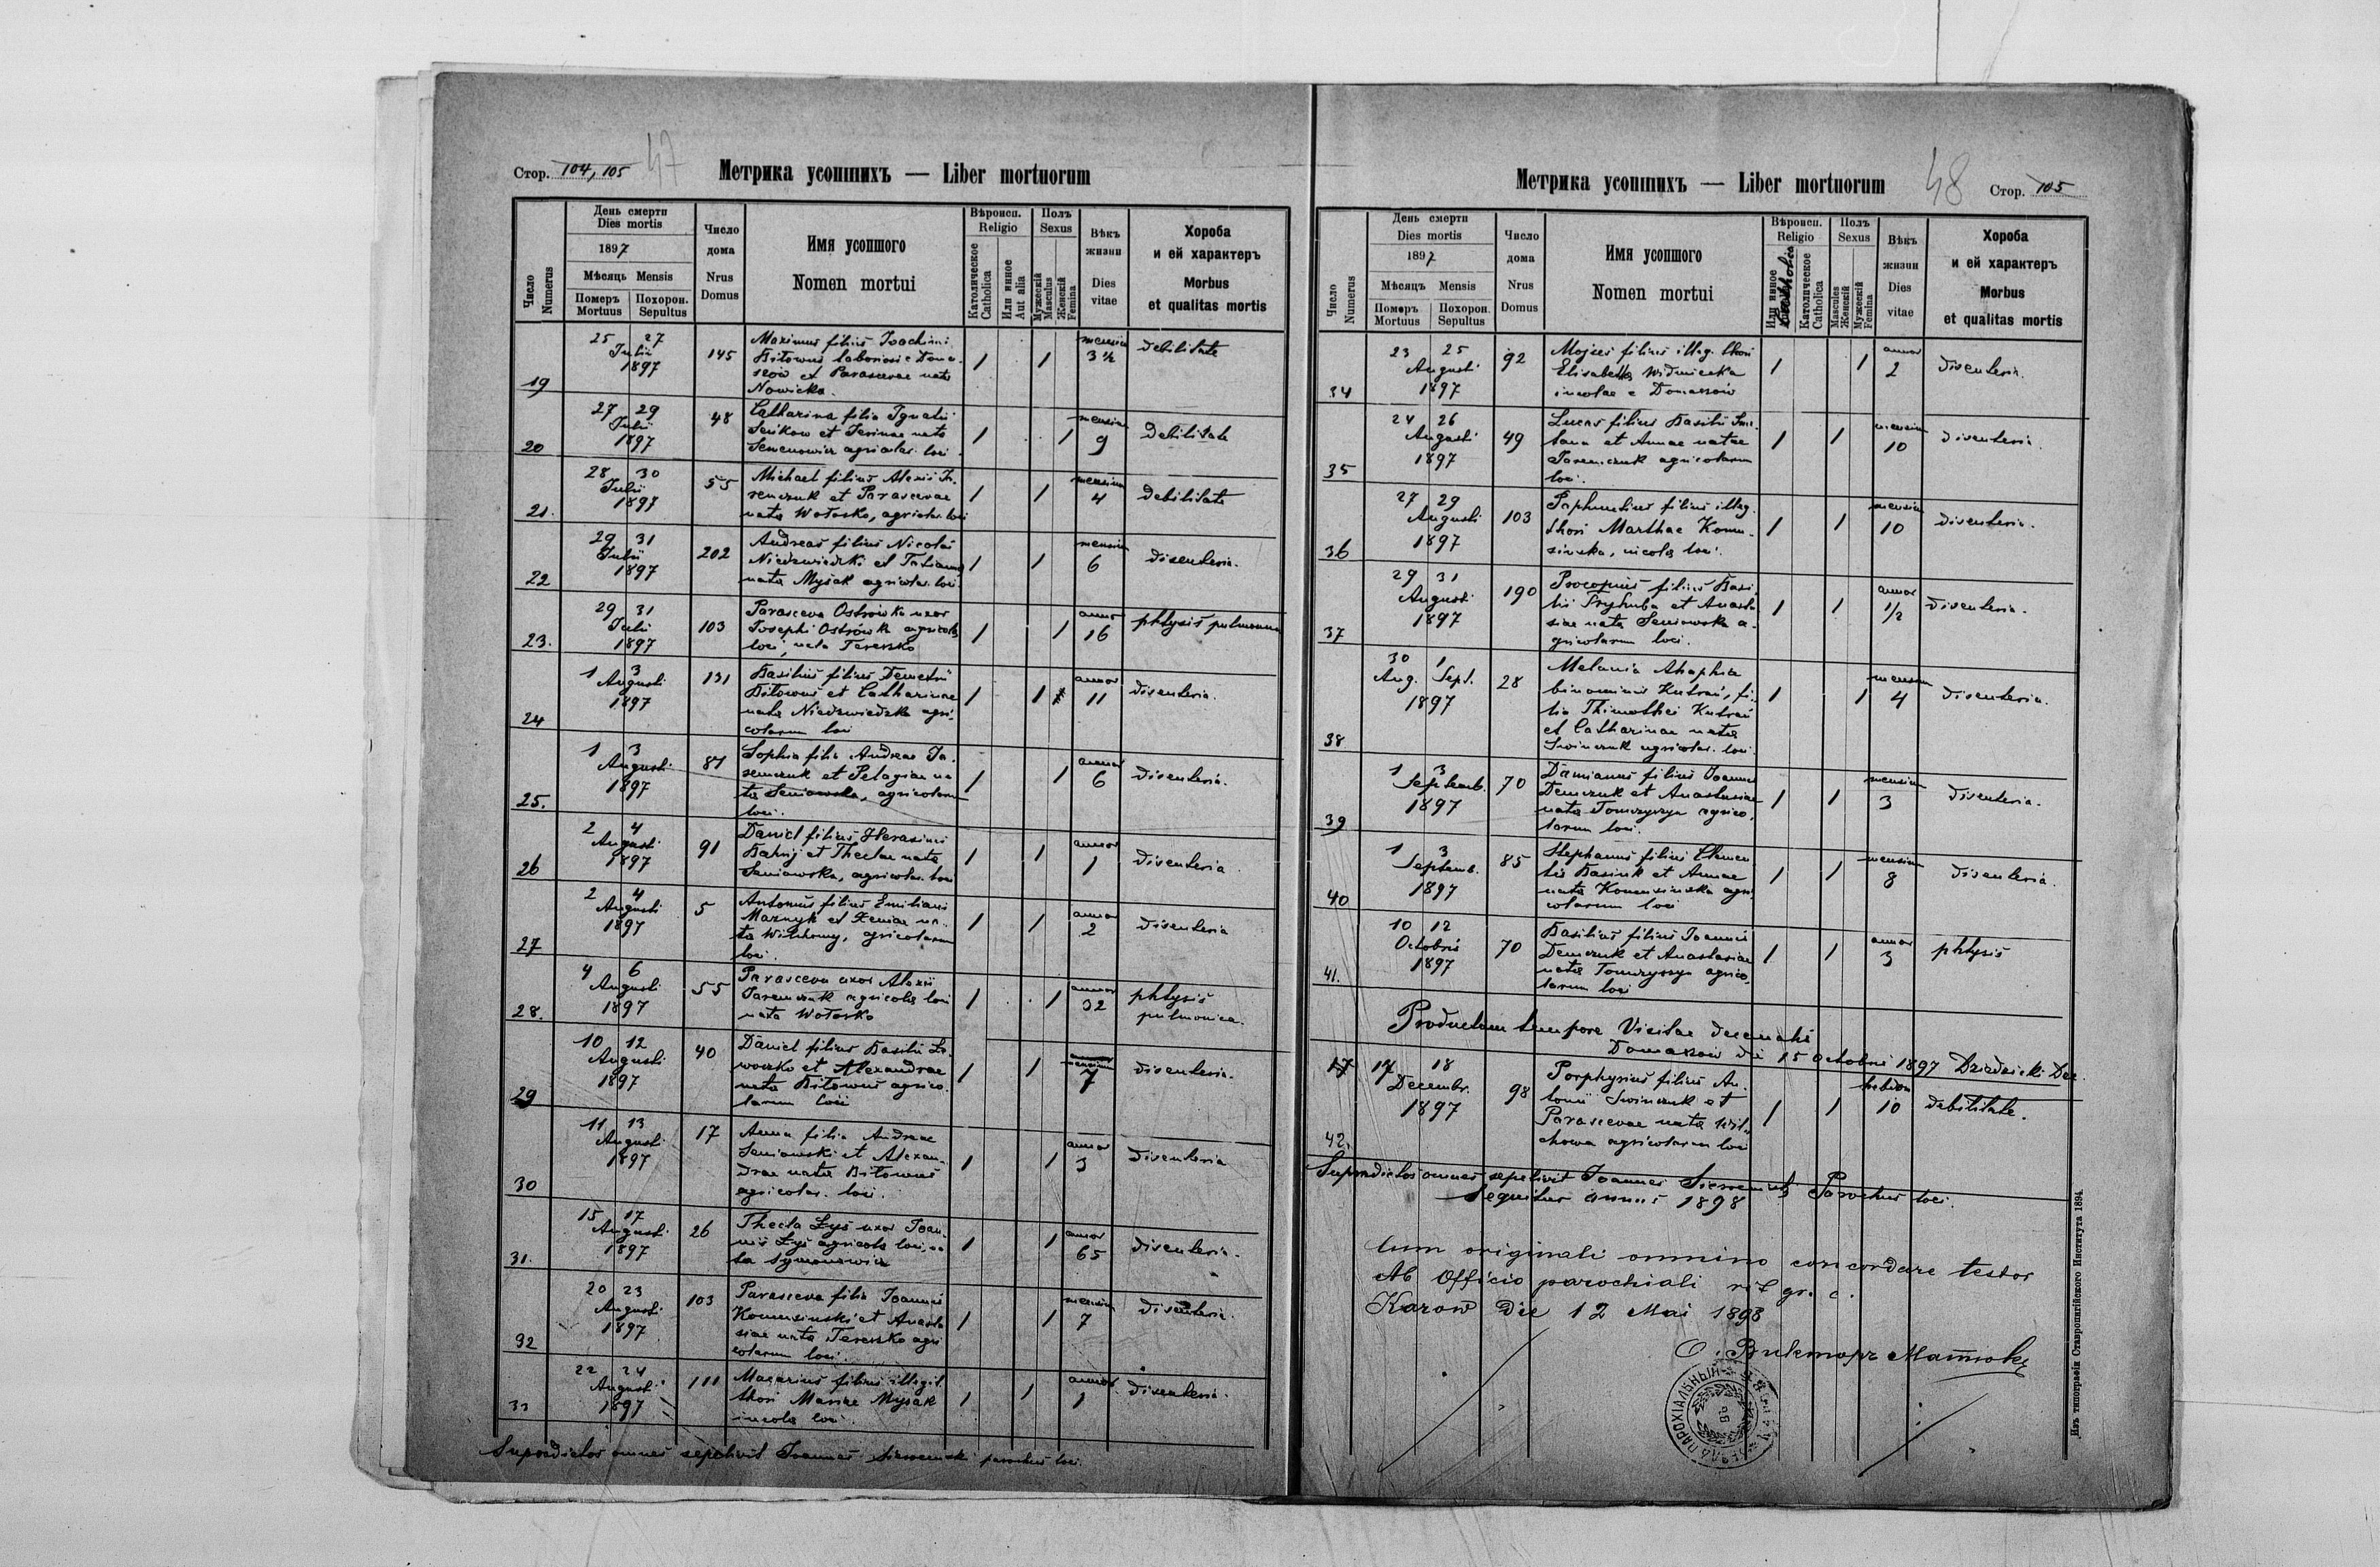 Стор. 104, 105
47
Метрика усопшихъ — Liber mortuorum
Число
Numerus
День смерти
Dies mortis
1897
Мѣсяць Mensis
Померъ
Mortuus
Похорон.
Sepultus
Число
дома
Nrus
Domus
Имя усопшого
Nomen mortui
Вѣроисп.
Religio
Католическое
Catholica
Или инное
Aut alia
Полъ
Sexus
Мужескій
Masculus
Женскій
Femina
Вѣкъ
жизни
Dies
vitae
Хороба
и ей характеръ
Morbus
et qualitas mortis
19
25 27
Julii
1897
145
Maximus filius Joachimi
Bitowus laboriosi e Doma-
szów et Parascevae nata
Nowicka.
1 1
mensium
3 1/2
debilitate
20
27 29
Julii
1897
48
Catharina filia Ignatii
Senkow et Irinae nata
Semenowicz agricolar. loci
1 1
mensium
9
debilitate
21.
28 30
Julii
1897
55
Michael filius Alexii Ja-
remczuk et Parascevae
nata Wołosko, agricolar. loci
1 1
mensium
4
debilitate
22
29 31
Julii
1897
202
Andreas filius Nicolai
Niedzwiedzki et Tatianna
nata Mysak agricolar. loci.
1 1
mensium
6
disenteria.
23.
29 31
Julii
1897
103
Parasceva Ostrówka uxor
Josephi Ostrówka agricola
loci, nata Tereszko
1 1
annor
16
phtysis pulmonum
24
1 3
Augusti
1897
131
Basilius filius Demetrii
Bitowus et Catharinae
nata Niedzwiedzka agri-
colarum loci
1 1
annor
11
disenteria.
25.
1 3
Augusti
1897
87
Sophia filia Andreae Ja-
remczuk et Pelagiae na
ta Seniowska, agricolarum
loci.
1 1
annor
6
disenteria.
26
2 4
Augusti
1897
91
Daniel filius Herasimi
Bahrij et Theclae nata
Seniowska, agricolar. loci
1 1
annor
1
disenteria.
27
2 4
Augusti
1897
5
Antonius filius Emiliani
Maznyk et Xeniae na-
ta Wilchowy, agricolarum
loci.
1 1
annor
2
disenteria
28.
4 6
Augusti
1897
55
Parasceva uxor Alexii
Jaremczuk agricola loci
nata Wołosko
1 1
annor
32
phtysis
pulmonica.
29
10 12
Augusti
1897
40
Daniel filius Basilii
et Alexandrae
nata Bitowus agrico-
larum loci
1 1
mensium
7
disenteria.
30
11 13
Augusti
1897
17
Anna filia Andreae
Seniowski et Alexan-
drae nata Bitowus
agricolar. loci.
1 1
annor
3
disenteria
31.
15 17
Augusti
1897
26
Thecla Łyś uxor Joan-
nis Łyś agricola loci, na
ta Symonowicz
1 1
annor
65
disenteria.
32
20 23
Augusti
1897
103
Parasceva filia Joannis
Komuszinski et Anasta
siae nata Tereszko agri
colarum loci.
1 1
mensium
7
disenteria.
33
22 24
Augusti
1897
111
Macarius filius illegit.
thori Mariae Mysak
incola loci.
1 1
annor
1
disenteria.
Supradictos omnes sepelivit Joannes parochus loci.
Метрика усопшихъ — Liber mortuorum
48
Стор. 105
Число
Numerus
День смерти
Dies mortis
1897
Мѣсяць Mensis
Померъ
Mortuus
Похорон.
Sepultus
Число
дома
Nrus
Domus
Имя усопшого
Nomen mortui
Вѣроисп.
Religio
Или инное
Catholica
Католическое
Catholica
Полъ
Sexus
Masculus
Женскій
Мужескій
Femina
Вѣкъ
жизни
Dies
vitae
Хороба
и ей характеръ
Morbus
et qualitas mortis
34
23 25
Augusti
1897
92
Mojses filius illeg. thori
Elisabetha Widniecka
incolae e Domaszów
1 1
annor
2
disenteria.
35
24 26
Augusti
1897
49
Lucas filius Basilii
et Annae natae
Jaremczuk agricolarum
loci.
1 1
mensium
10
disenteria.
36
27 29
Augusti
1897
103
Paphnutius filius illeg.
thori Marthae Komu-
szinska, incola loci.
1 1
mensium
10
disenteria.
37
29 31
Augusti
1897
190
Procopius filius Basi
lii Tryhuba et Anasta
siae nata Seniowska a-
gricolarum loci.
1 1
annor
1/2
disenteria.
38
30 1
Aug. Sept.
1897
28
Melania Ahaphia
binominis Kutraś, fi-
lia Thimothei Kutraś
et Catharinae nata
Swinczuk agricolar. loci.
1 1
mensium
4
disenteria.
39
1 3
Septemb.
1897
70
Damianus filius Joannis
Demczuk et Anastasiae
nata Tomczyszyn agrico-
larum loci.
1 1
mensium
3
disenteria.
40
1 3
Septemb.
1897
85
Stephanus filius Clemen
tis Basiuk et Annae
nata Komuszinska agri
colarum loci
1 1
mensium
8
disenteria.
41.
10 12
Octobris
1897
70
Basilius filius Joannis
Demczuk et Anastasiae
nata Tomczyszyn agrico-
larum loci
1 1
annor
3
phtysis
Productum tempore Visitae decanalis
Domaszów die 15 Octobris 1897 Dziedzicki Dec.
17 17 18
Decembr.
1897
42.
98
Porphyrius filius An-
tonii Swinczuk et
Parascevae nata Wil-
chowa agricolarum loci
1 1
hebdom
10
debilitate.
Supradictos omnes sepelivit Joannes Parochus loci.
Sequitur annus 1898
Cum originali omnino concordare testor
Ab Officio parochiali rit. gr. c.
Karow Die 12 Mai 1898
О. Викторъ Матюкъ
ПАРОХІАЛЬНЫЙ
Изъ типографіи Ставропигійского Института 1894.